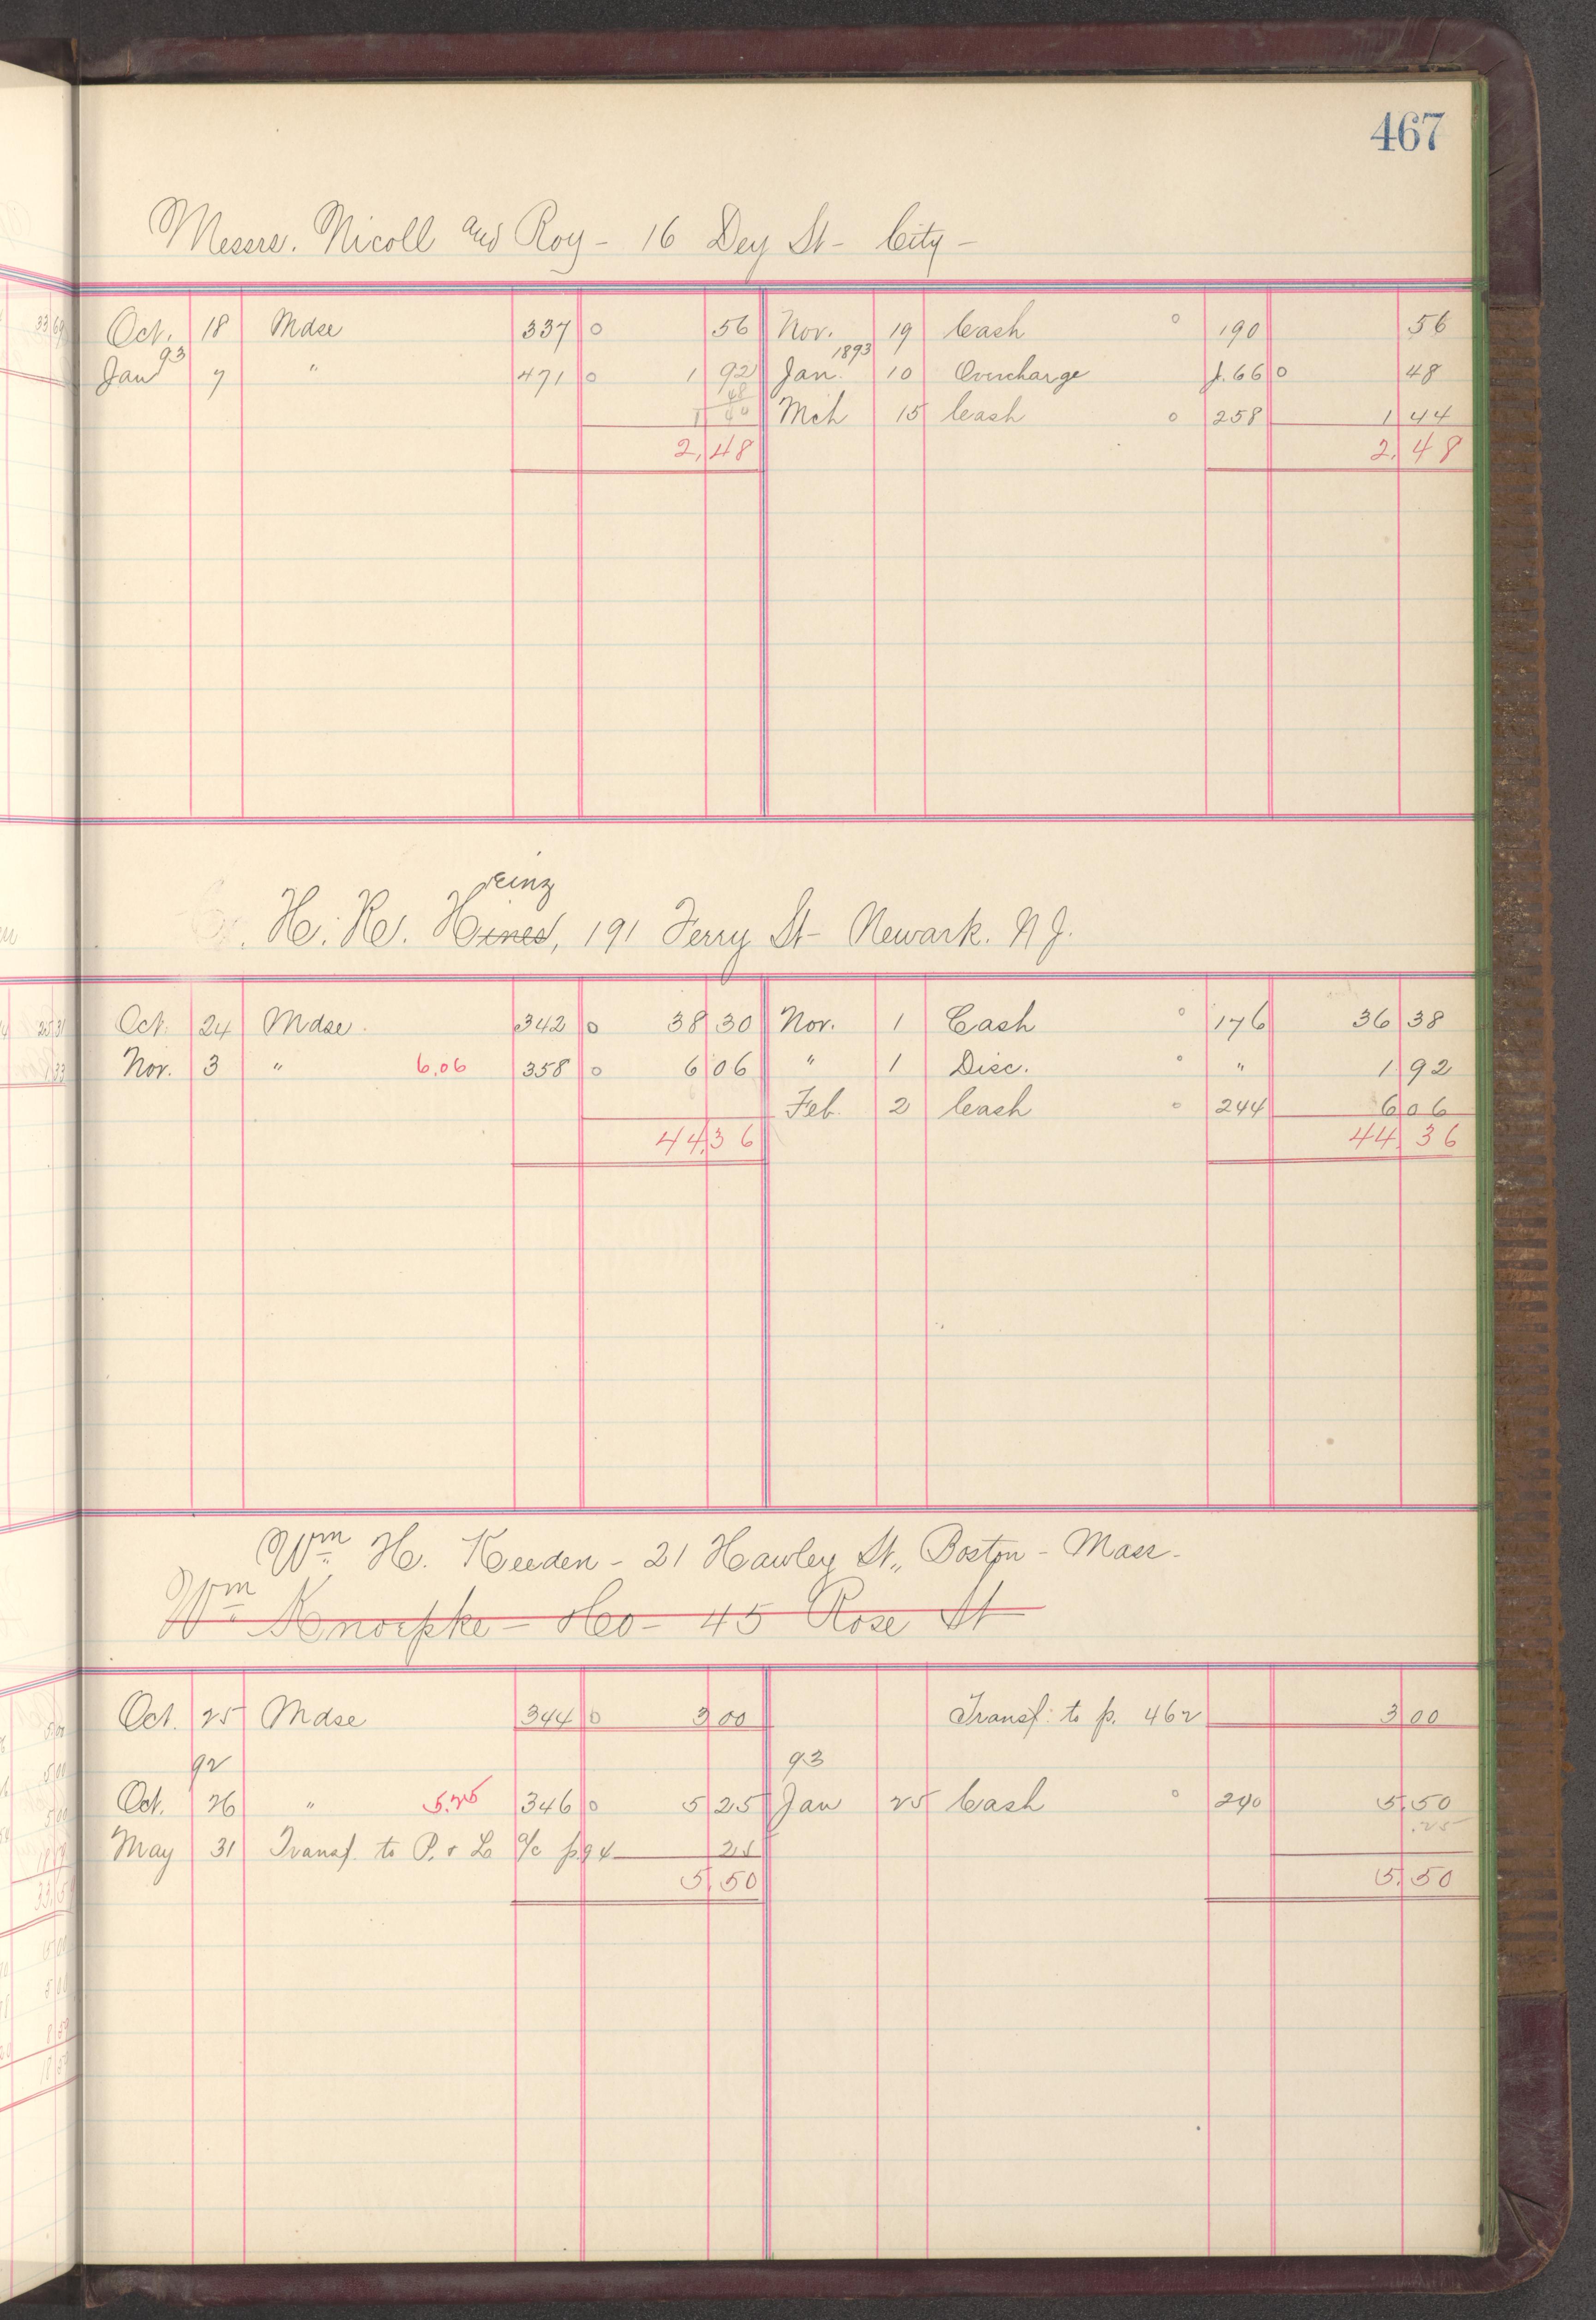 467
Messrs. Nicoll and Roy - 16 Dey St - City -
Oct. 18 Mdse 337 o 56 Nov. 19 Cash o 190 56
Jan 93 7 " 471 o 1 92 Jan. 1893 10 Overcharge J.66 o 48
48
1 44 Mch 15 Cash o 258 1 44
2,48 2,48
H. Hines, einz 191 Ferry St - Newark. N J.
Oct. 24 Mdse. 342 o 38 30 Nov. 1 Cash o 176 36 38
Nov. 3 " 6.06 358 o 6 06 " 1 Disc. o " 1 92
Feb. 2 Cash o 244 6 06
44,36 44,36
Wm H. - 21 Hawley St., Boston - Mass -
Wm Knoepke - Ho - 45 Rose St
Oct. 25 Mdse 344 o 3 00 Transf. to p. 462 3 00
92 93
Oct. 26 " 5.25 346 o 5 25 Jan 25 Cash o 240 5,50
.25
May 31 Transf. to P. & L a/c p.94 25
5,50 5,50